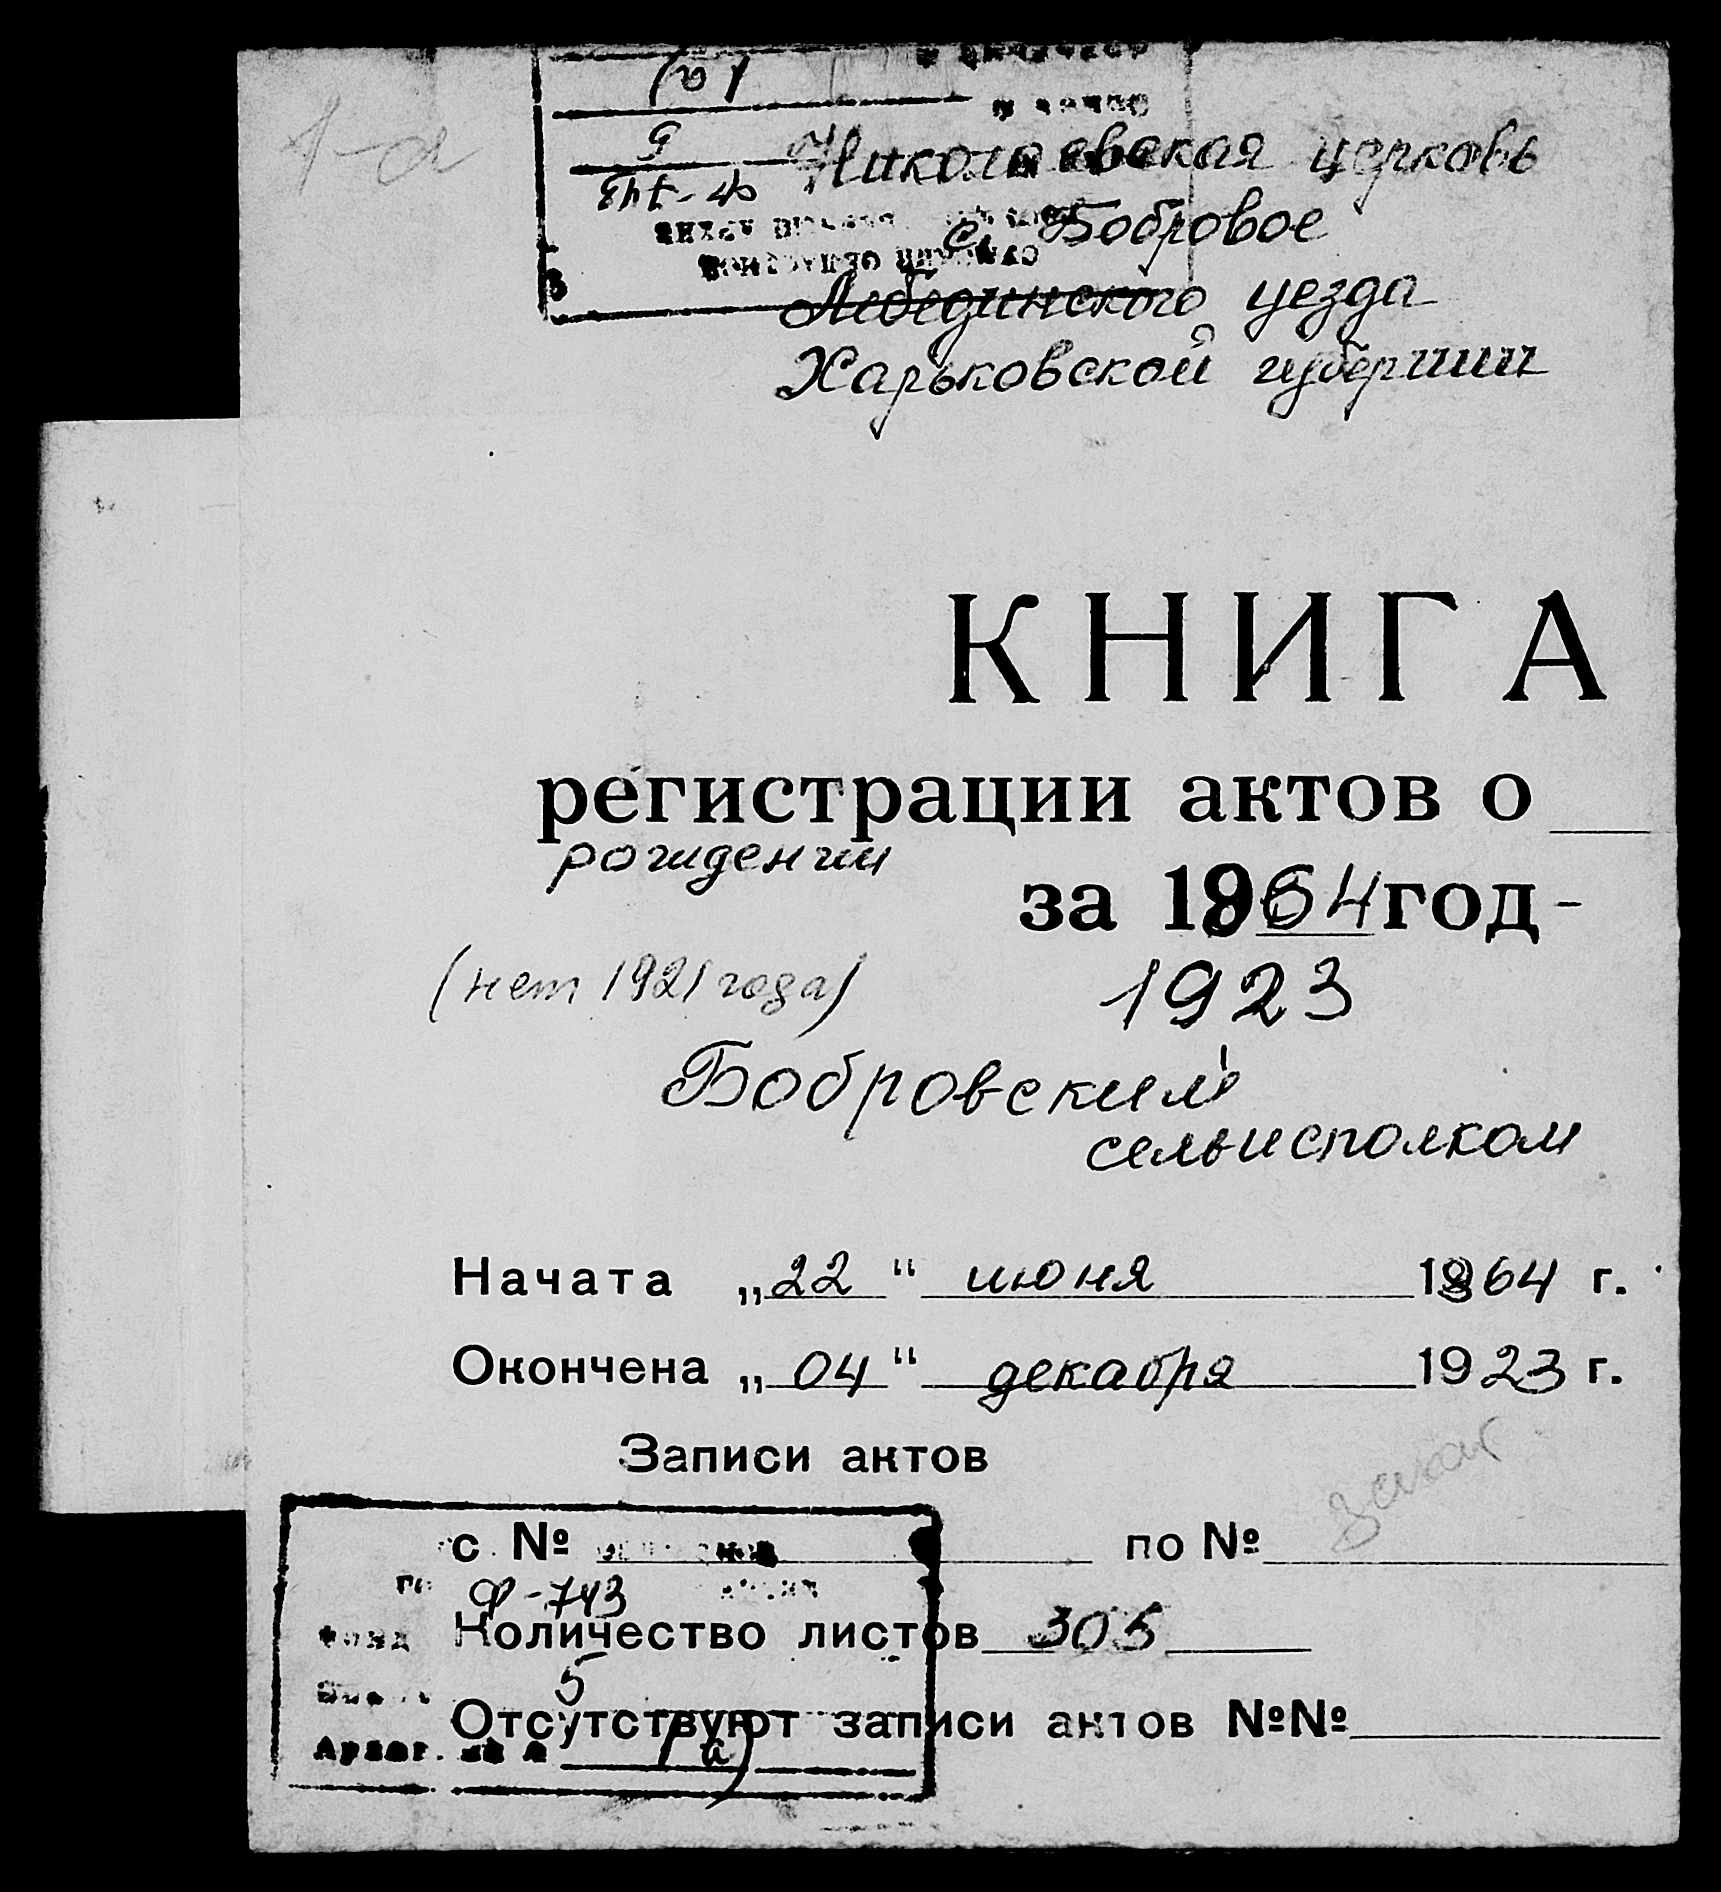 1-а
Николаевская церковь
с. Бобровое
Лебединского уезда
Харьковской губернии
КНИГА
регистрации актов о
рождении
за 1864 год -
(нет 1921 года)
1923
Бобровским
сельисполком
Начата „22“ июня 1864 г.
Окончена „04“ декабря 1923 г.
Записи актов
с № по №
Ф-743
Фонд
Количество листов 305
5
Отсутствуют записи актов №№